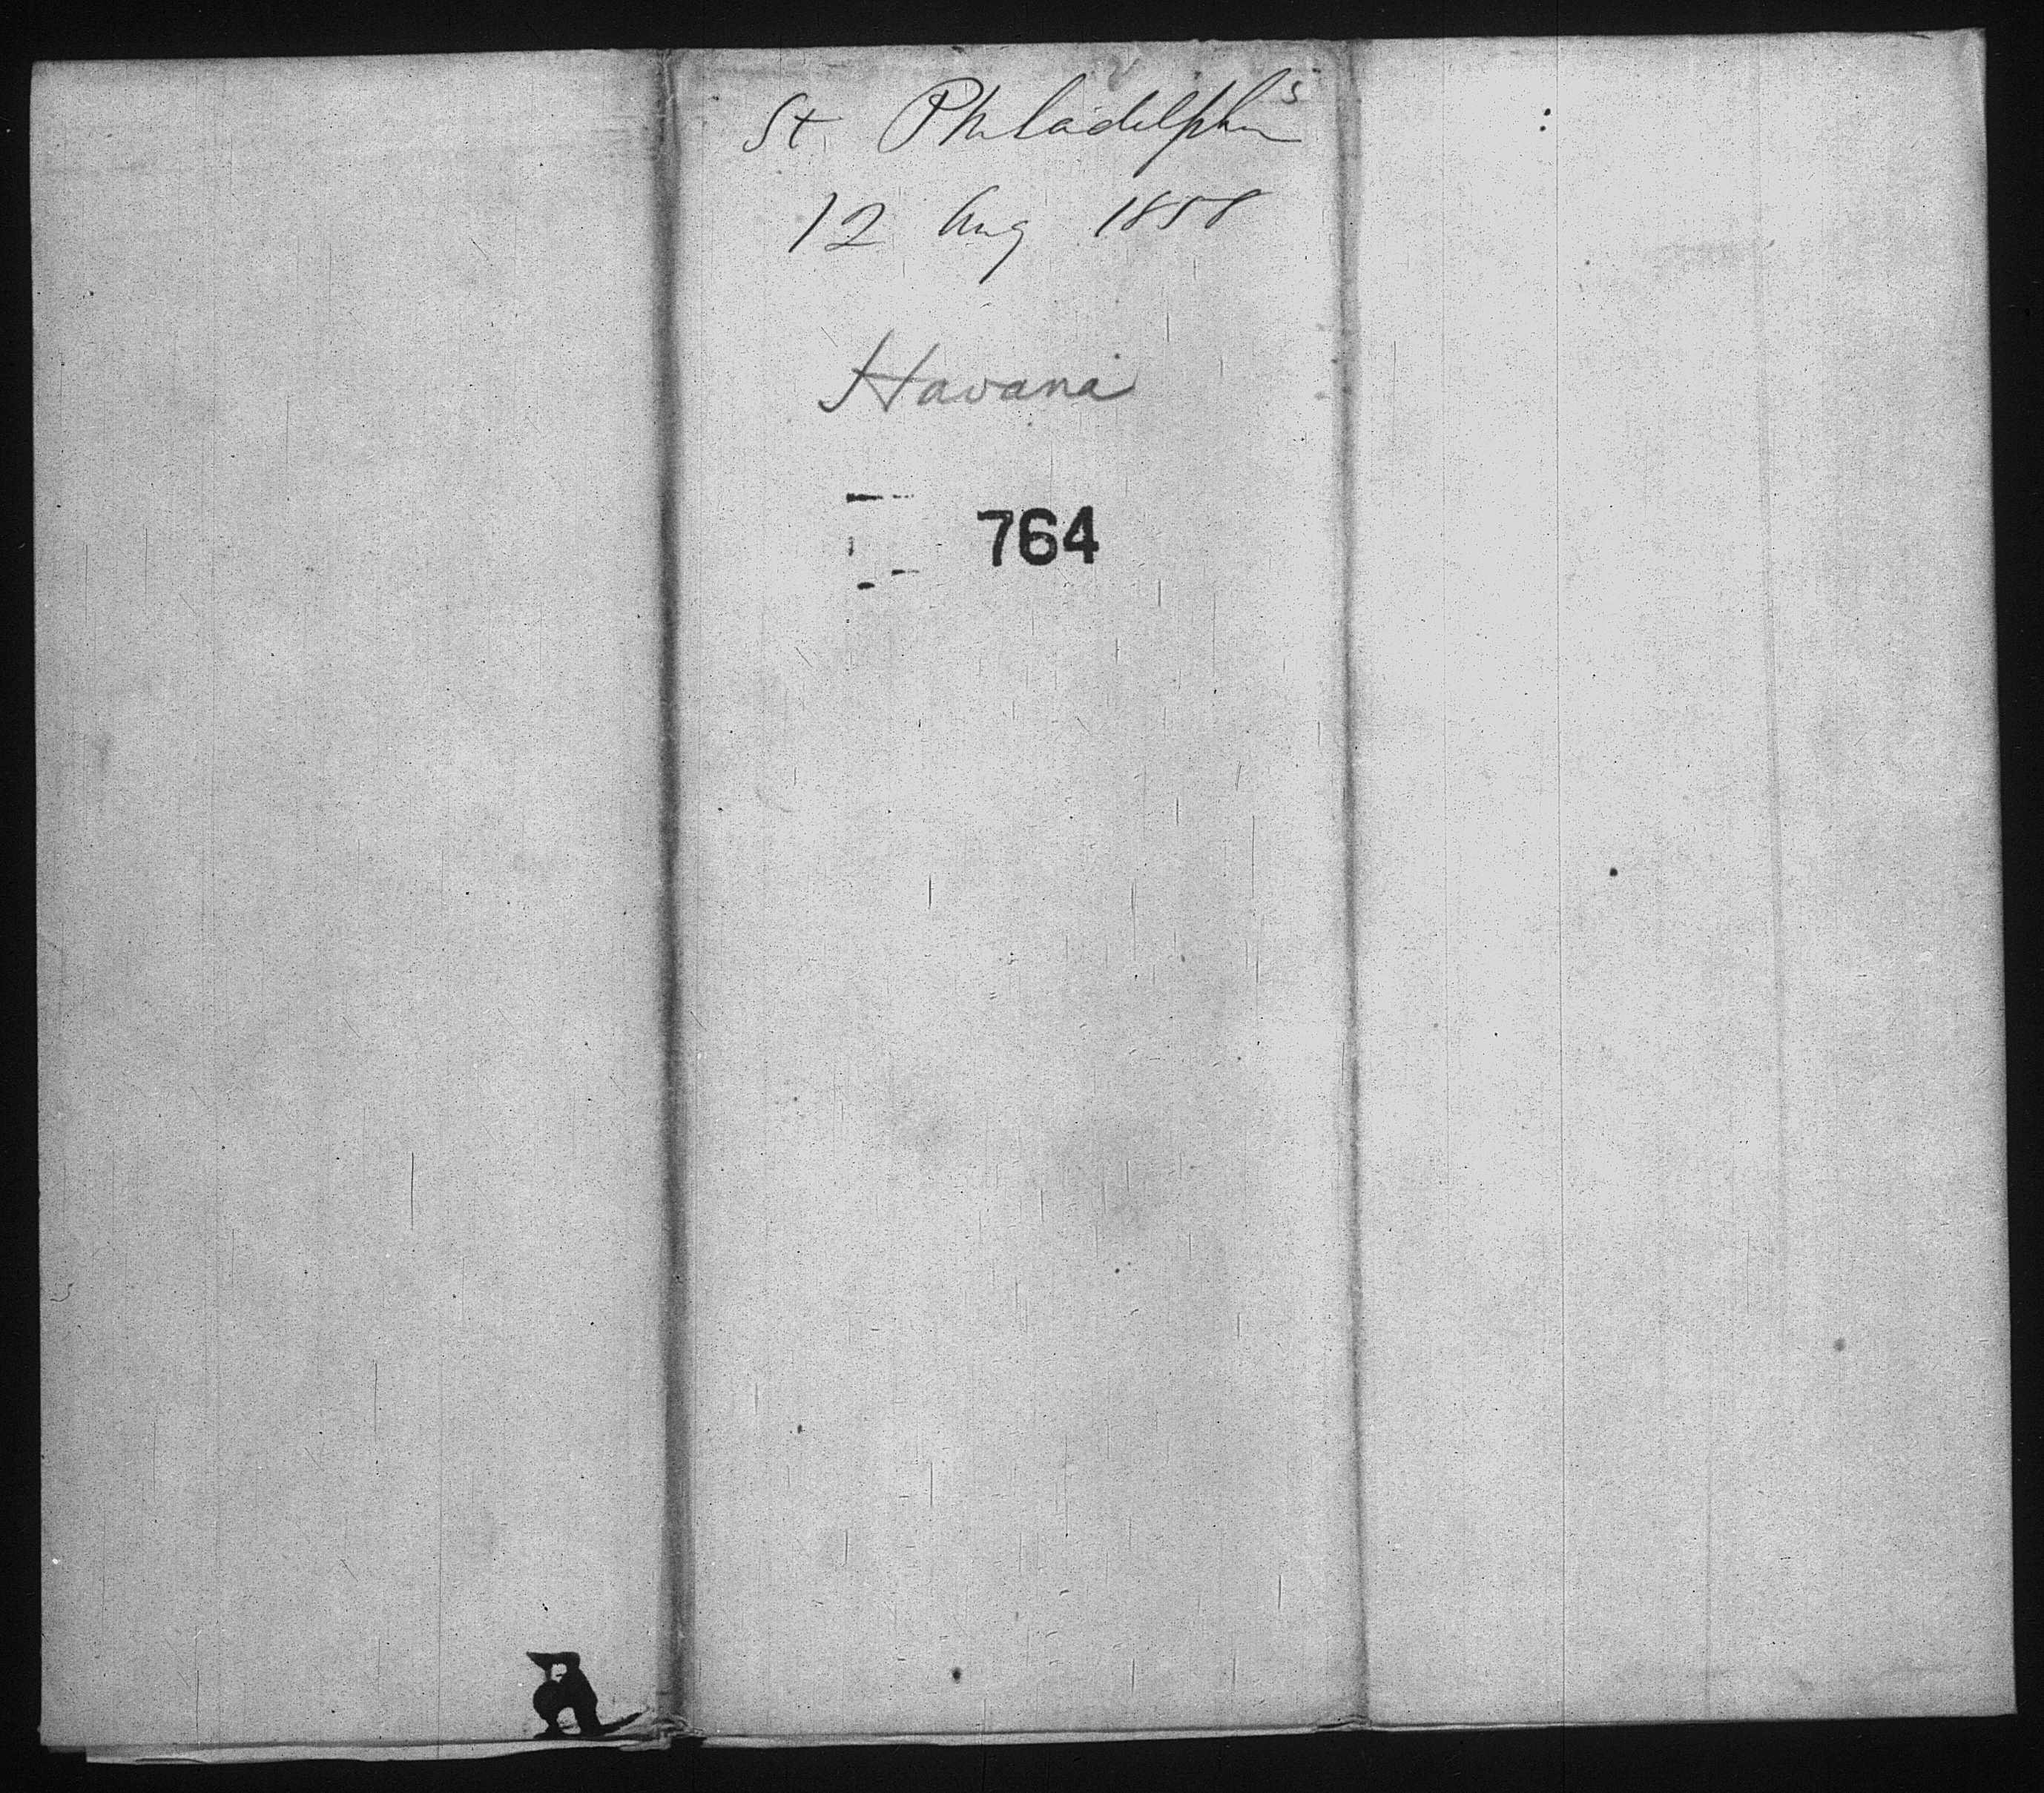 St. Philadelphia
12 Aug 1858
Havana
764